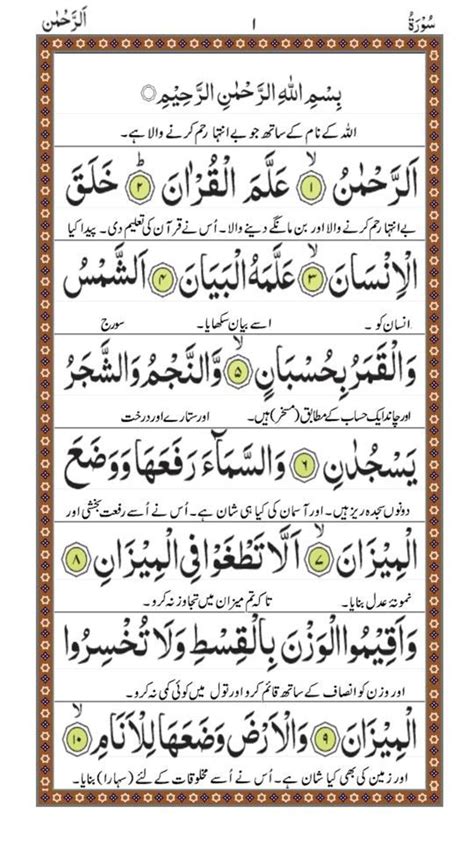 سُوْرَةُ ١ اَلرَّحْمٰن
بِسْمِ اللّٰهِ الرَّحْمٰنِ الرَّحِيْمِ
اللہ کے نام کے ساتھ جو بے انتہا رحم کرنے والا ہے۔
اَلرَّحْمٰنُ ۙ﴿۱﴾ عَلَّمَ الْقُرْاٰنَ ؕ﴿۲﴾ خَلَقَ
بے انتہا رحم کرنے والا اور بن مانگے دینے والا۔ اُس نے قرآن کی تعلیم دی۔ پیدا کیا
الْاِنْسَانَ ۙ﴿۳﴾ عَلَّمَهُ الْبَيَانَ ﴿۴﴾ اَلشَّمْسُ
انسان کو ۔ اسے بیان سکھایا۔ سورج
وَالْقَمَرُ بِحُسْبَانٍ ۙ﴿۵﴾ وَّالنَّجْمُ وَالشَّجَرُ
اور چاند ایک حساب کے مطابق (مسخر) ہیں۔ اور ستارے اور درخت
يَسْجُدٰنِ ﴿۶﴾ وَالسَّمَآءَ رَفَعَهَا وَوَضَعَ
دونوں سجدہ ریز ہیں۔ اور آسمان کی کیا ہی شان ہے۔ اُس نے اُسے رفعت بخشی اور
الْمِيْزَانَ ۙ﴿۷﴾ اَلَّا تَطْغَوْا فِي الْمِيْزَانِ ﴿۸﴾
نمونۂ عدل بنایا۔ تا کہ تم میزان میں تجاوز نہ کرو۔
وَاَقِيْمُوا الْوَزْنَ بِالْقِسْطِ وَلَا تُخْسِرُوا
اور وزن کو انصاف کے ساتھ قائم کرو اور تول میں کوئی کمی نہ کرو۔
الْمِيْزَانَ ﴿۹﴾ وَالْاَرْضَ وَضَعَهَا لِلْاَنَامِ ۙ﴿۱۰﴾
اور زمین کی بھی کیا شان ہے۔ اُس نے اُسے مخلوقات کے لئے (سہارا) بنایا۔